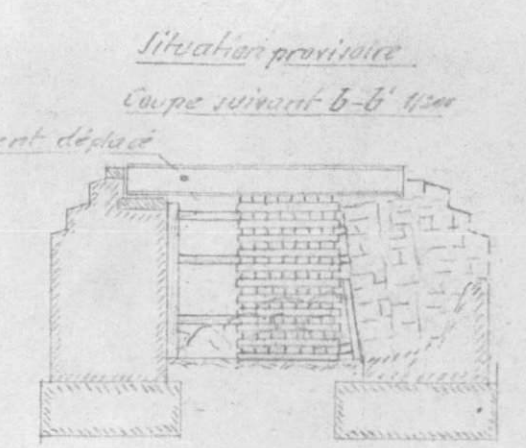 Situation provisoire
Coupe suivant b-b'
ent déplacé